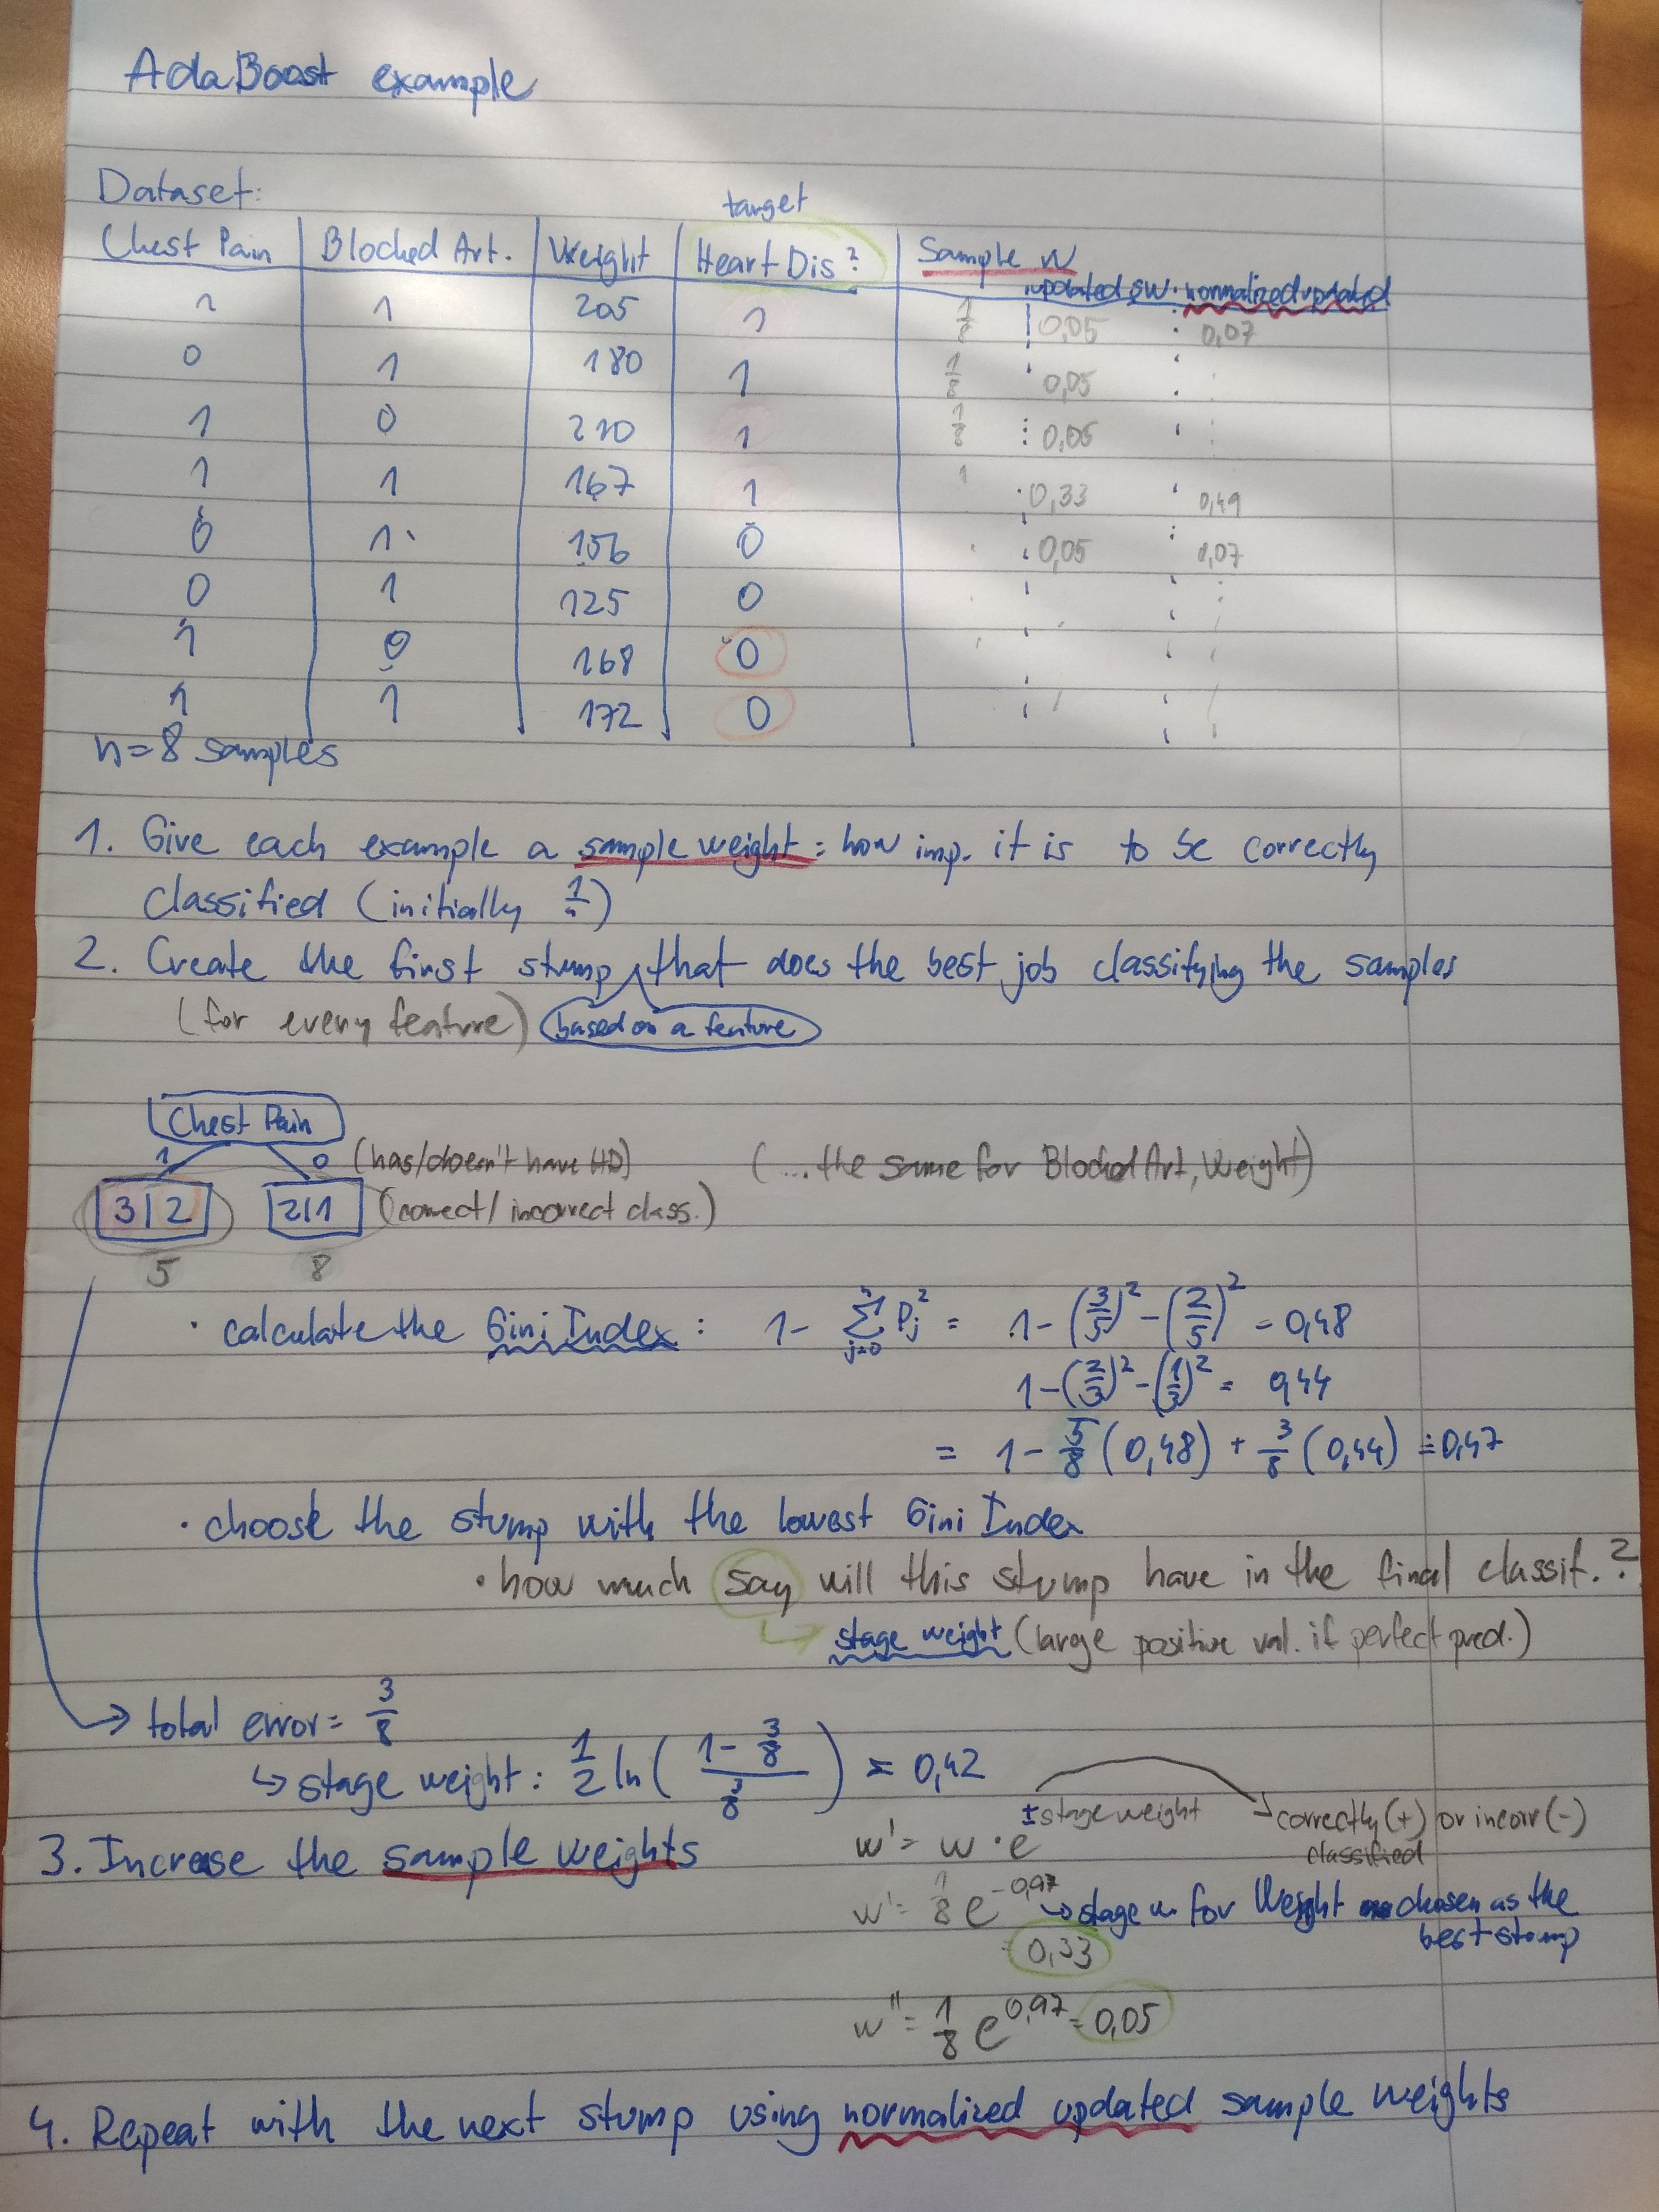 AdaBoost example
Dataset:
target
Chest Pain | Blocked Art. | Weight | Heart Dis? | Sample W
updated sw. normalized updated
1 1 205 1 1/8 0,05 0,07
0 1 180 1 1/8 0,05
1 0 210 1 1/8 0,05
1 1 167 1 1 0,33 0,49
0 1 156 0 0,05 0,07
0 1 125 0
1 0 168 0
1 1 172 0
n=8 samples
1. Give each example a sample weight: how imp. it is to be correctly
classified (initially 1/n)
2. Create the first stump that does the best job classifying the samples
(for every feature) based on a feature
Chest Pain
1 0 (has/doesn't have HD) (...the same for Blocked Art, Weight)
3|2 2|1 (correct/incorrect class.)
5 8
· calculate the Gini Index: 1- Σ Pj² = 1-(3/5)²-(2/5)² = 0,48
1-(2/3)²-(1/3)² = 0,44
= 1- 5/8 (0,48) + 3/8 (0,44) = 0,47
· choose the stump with the lowest Gini Index
· how much say will this stump have in the final classif.?
stage weight (large positive val. if perfect pred.)
→ total error = 3/8
↳ stage weight: 1/2 ln( (1- 3/8) / (3/8) ) = 0,42
3. Increase the sample weights w' = w · e^(± stage weight) → correctly (+) or incorr (-)
classified
w' = 1/8 e^(-0,97) ↳ stage w. for Weight chosen as the
best stump
= 0,33
w" = 1/8 e^(0,97) = 0,05
4. Repeat with the next stump using normalized updated sample weights